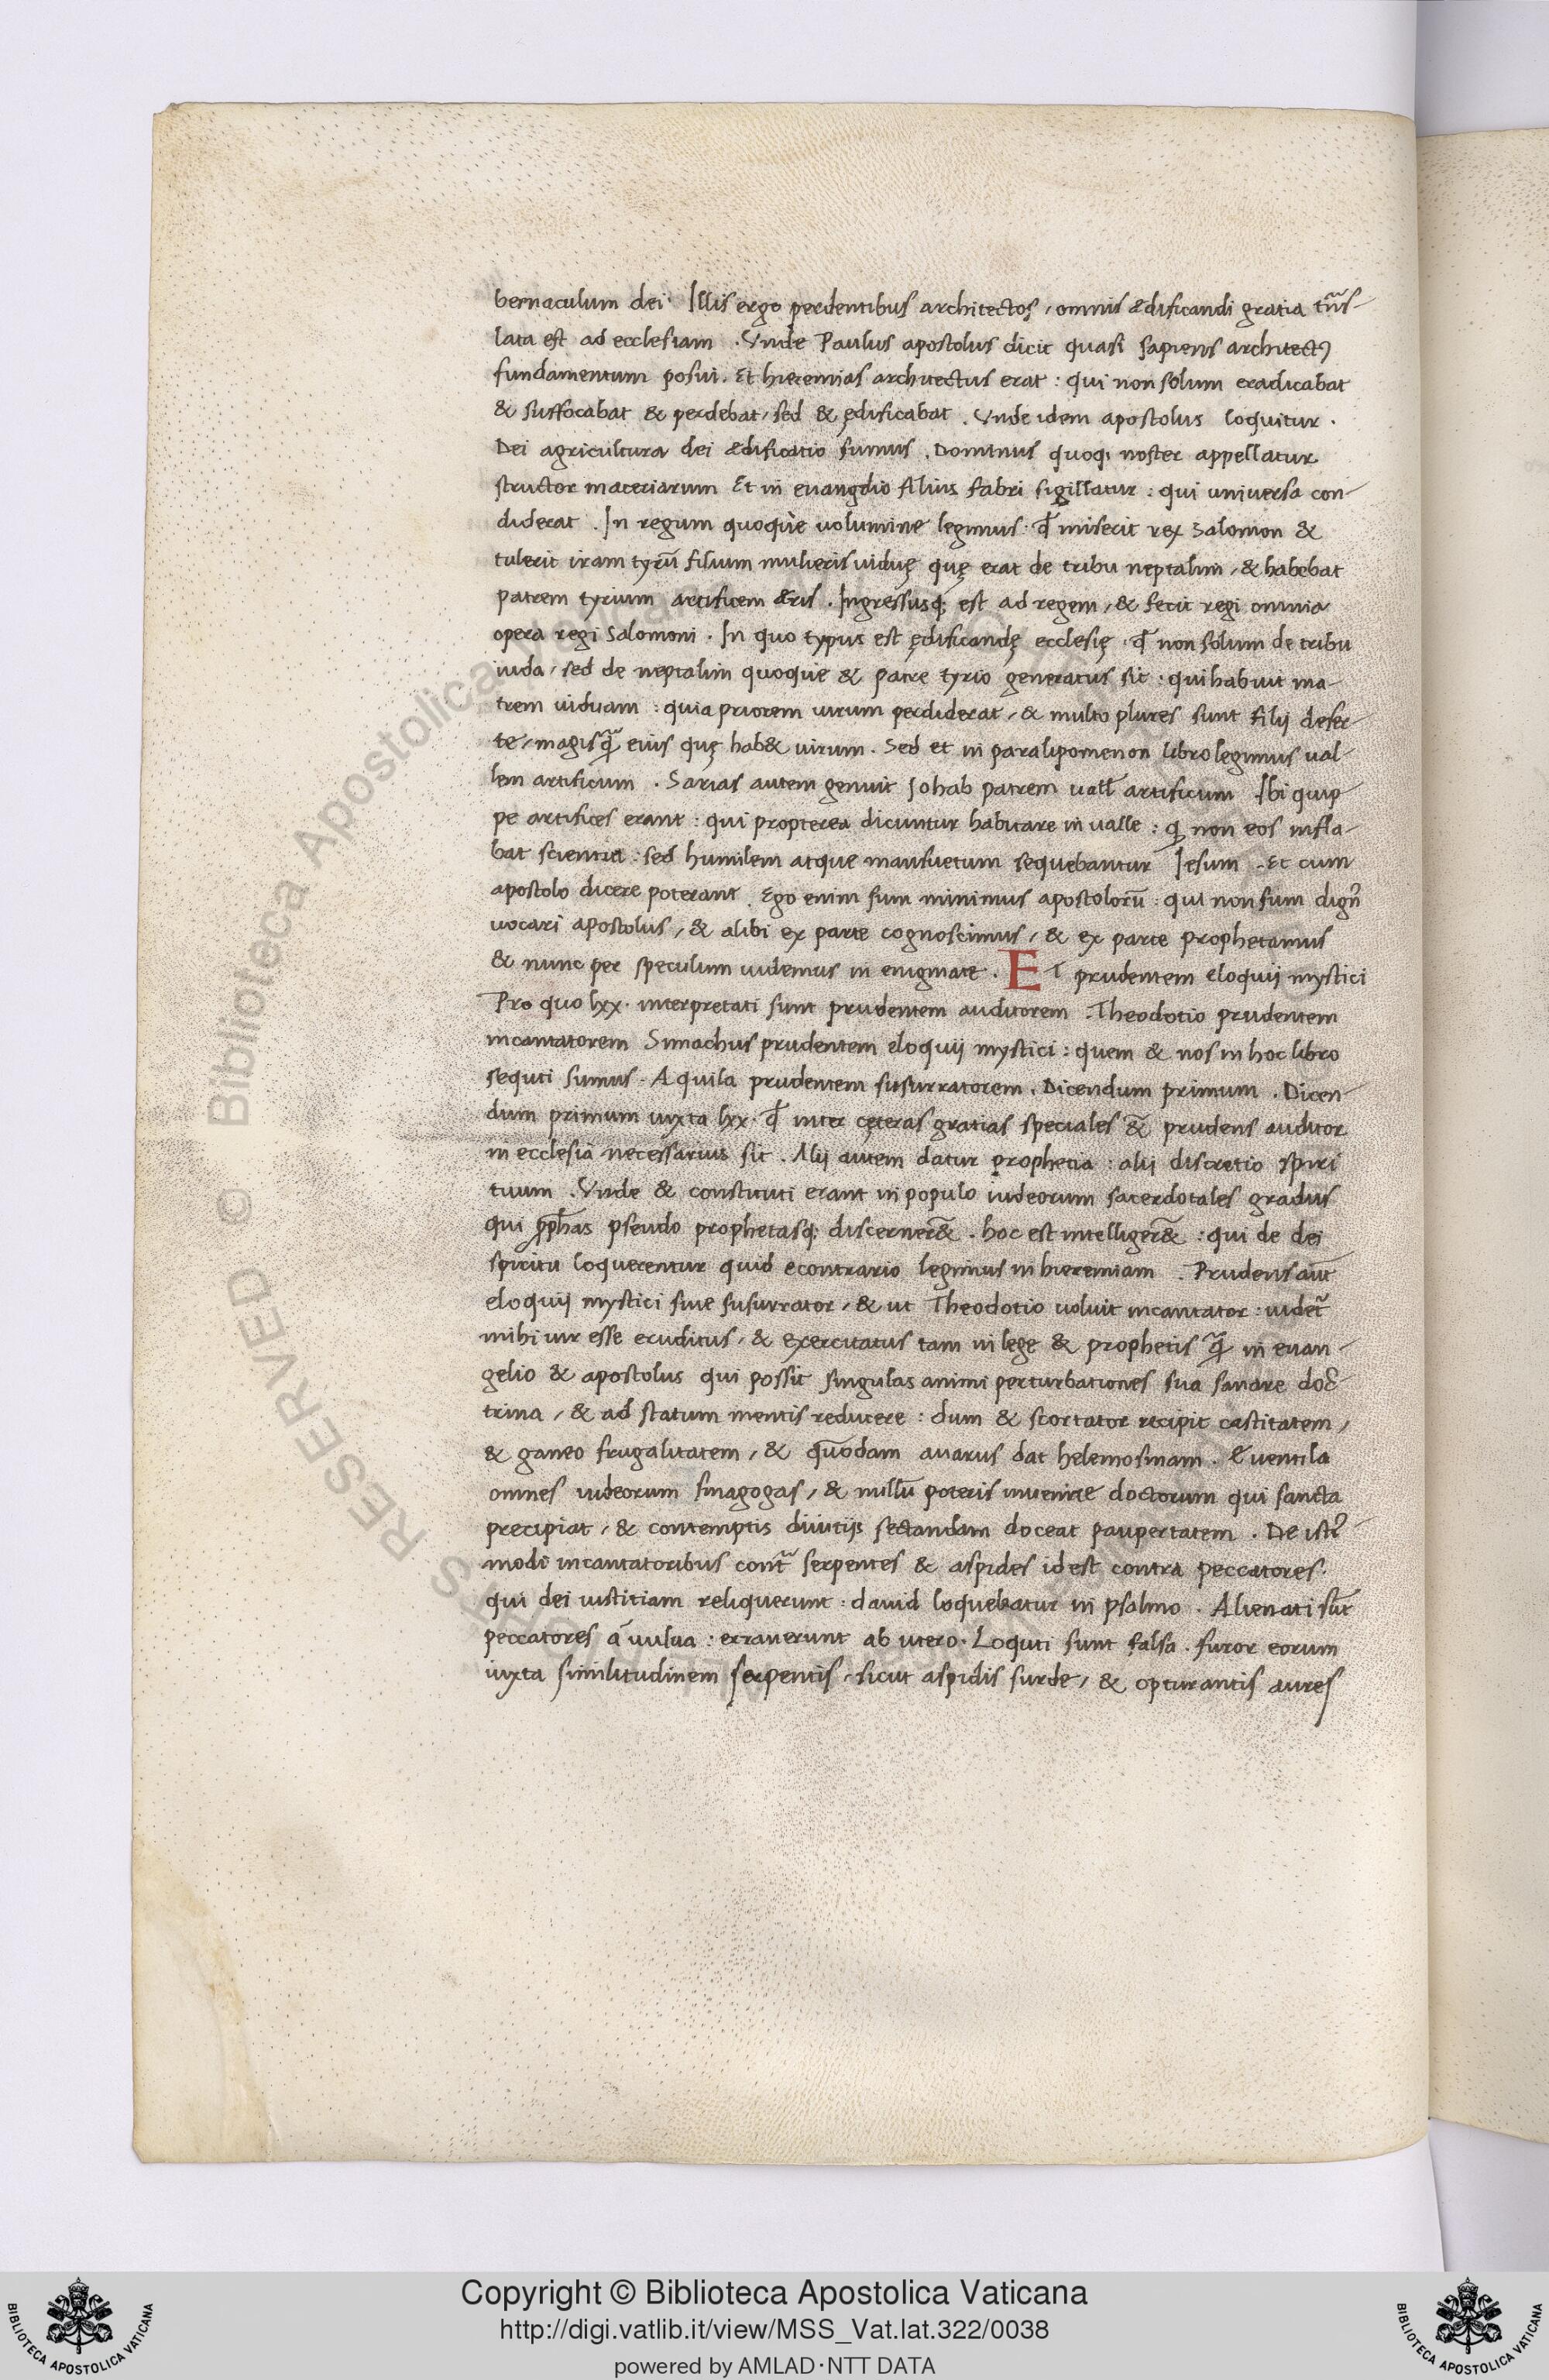 bernaculum dei. Illis ergo perdentibus architectos, omnis ædificandi gratia tn̄s-
lata est ad ecclesiam. Vnde Paulus apostolus dicit quasi sapiens architectꝯ
fundamentum posui. Et hieremias architectus erat: qui non solum eradicabat
& suffocabat & perdebat, sed & ędificabat. Vnde idem apostolus loquitur.
Dei agricultura dei ædificatio sumus. Dominus quoq; noster appellatur
structor maceriarum Et in euangelio filius fabri sigillatur: qui universa con-
diderat. In regum quoque uolumine legimus. qđ miserit rex Salomon &
tulerit iram tyrū filium mulieris uiduę quę erat de tribu neptalim, & habebat
patrem tyrium artificem æris. Ingressusq; est ad regem, & fecit regi omnia
opera regi Salomoni. In quo typus est ędificandę ecclesię. qđ non solum de tribu
iuda, sed de neptalim quoque & patre tyrio generatus sit: qui habuit ma-
trem uiduam: quia priorem uirum perdiderat, & multo plures sunt filij deser-
te, magis q̃ eius quę hab& uirum. Sed et in paralipomenon libro legimus ual-
lem artificum. Sarias autem genuit Johab patrem uall̄ artificum Ibi quip
pe artifices erant: qui propterea dicuntur habitare in ualle: q̨ non eos infla-
bat scientia: sed humilem atque mansuetum sequebantur Iesum. Et cum
apostolo dicere poterant. Ego enim sum minimus apostolorū: qui non sum dignꝰ
uocari apostolus, & alibi ex parte cognoscimus, & ex parte prophetamus
& nunc per speculum uidemus in enigmate. ET prudentem eloquij mystici
Pro quo lxx. interpretati sunt prudentem auditorem. Theodotio prudentem
incantatorem Simachus prudentem eloquij mystici: quem & nos in hoc libro
sequti sumus. Aquila prudentem susurratorem. Dicendum primum. Dicen-
dum primum iuxta lxx. qđ inter cęteras gratias speciales &̃ prudens auditor
in ecclesia necessarius sit. Alij autem datur prophetia: alij discretio spiri
tuum. Vnde & constituti erant in populo iudeorum sacerdotales gradus
qui ꝓph̄as pseudo prophetasq; discerner&̃. hoc est intelliger&̃: qui de dei
spiritu loquerentur quid econtrario legimus in hieremiam. Prudens aūt
eloquij mystici siue susurrator, & ut Theodotio uoluit incantator: uidet̃
mihi uir esse eruditus, & exercitatus tam in lege & prophetis q̃ in euan-
gelio & apostolus qui possit singulas animi perturbationes sua sanare doc̃-
trina, & ad statum mentis reducere: dum & scortator recipit castitatem,
& ganeo frugalitatem, & quōdam auarus dat helemosinam. Euentila
omnes iudeorum sinagogas, & nullū poteris inuenire doctorum qui sancta
precipiat, & contemptis diuitijs sectandam doceat paupertatem. De istꝰ-
modi incantatoribus cont̃ serpentes & aspides id est contra peccatores.
qui dei iustitiam reliquerunt: dauid loquebatur in psalmo. Alienati sūt
peccatores a uulua: errauerunt ab utero. Loquti sunt falsa. furor eorum
iuxta similitudinem serpentis, sicut aspidis surde, & opturantis aures
© Biblioteca Apostolica
RESERVED
Copyright © Biblioteca Apostolica Vaticana
http://digi.vatlib.it/view/MSS_Vat.lat.322/0038
powered by AMLAD·NTT DATA
BIBLIOTECA APOSTOLICA VATICANA
BIBLIOTECA APOSTOLICA VATICANA